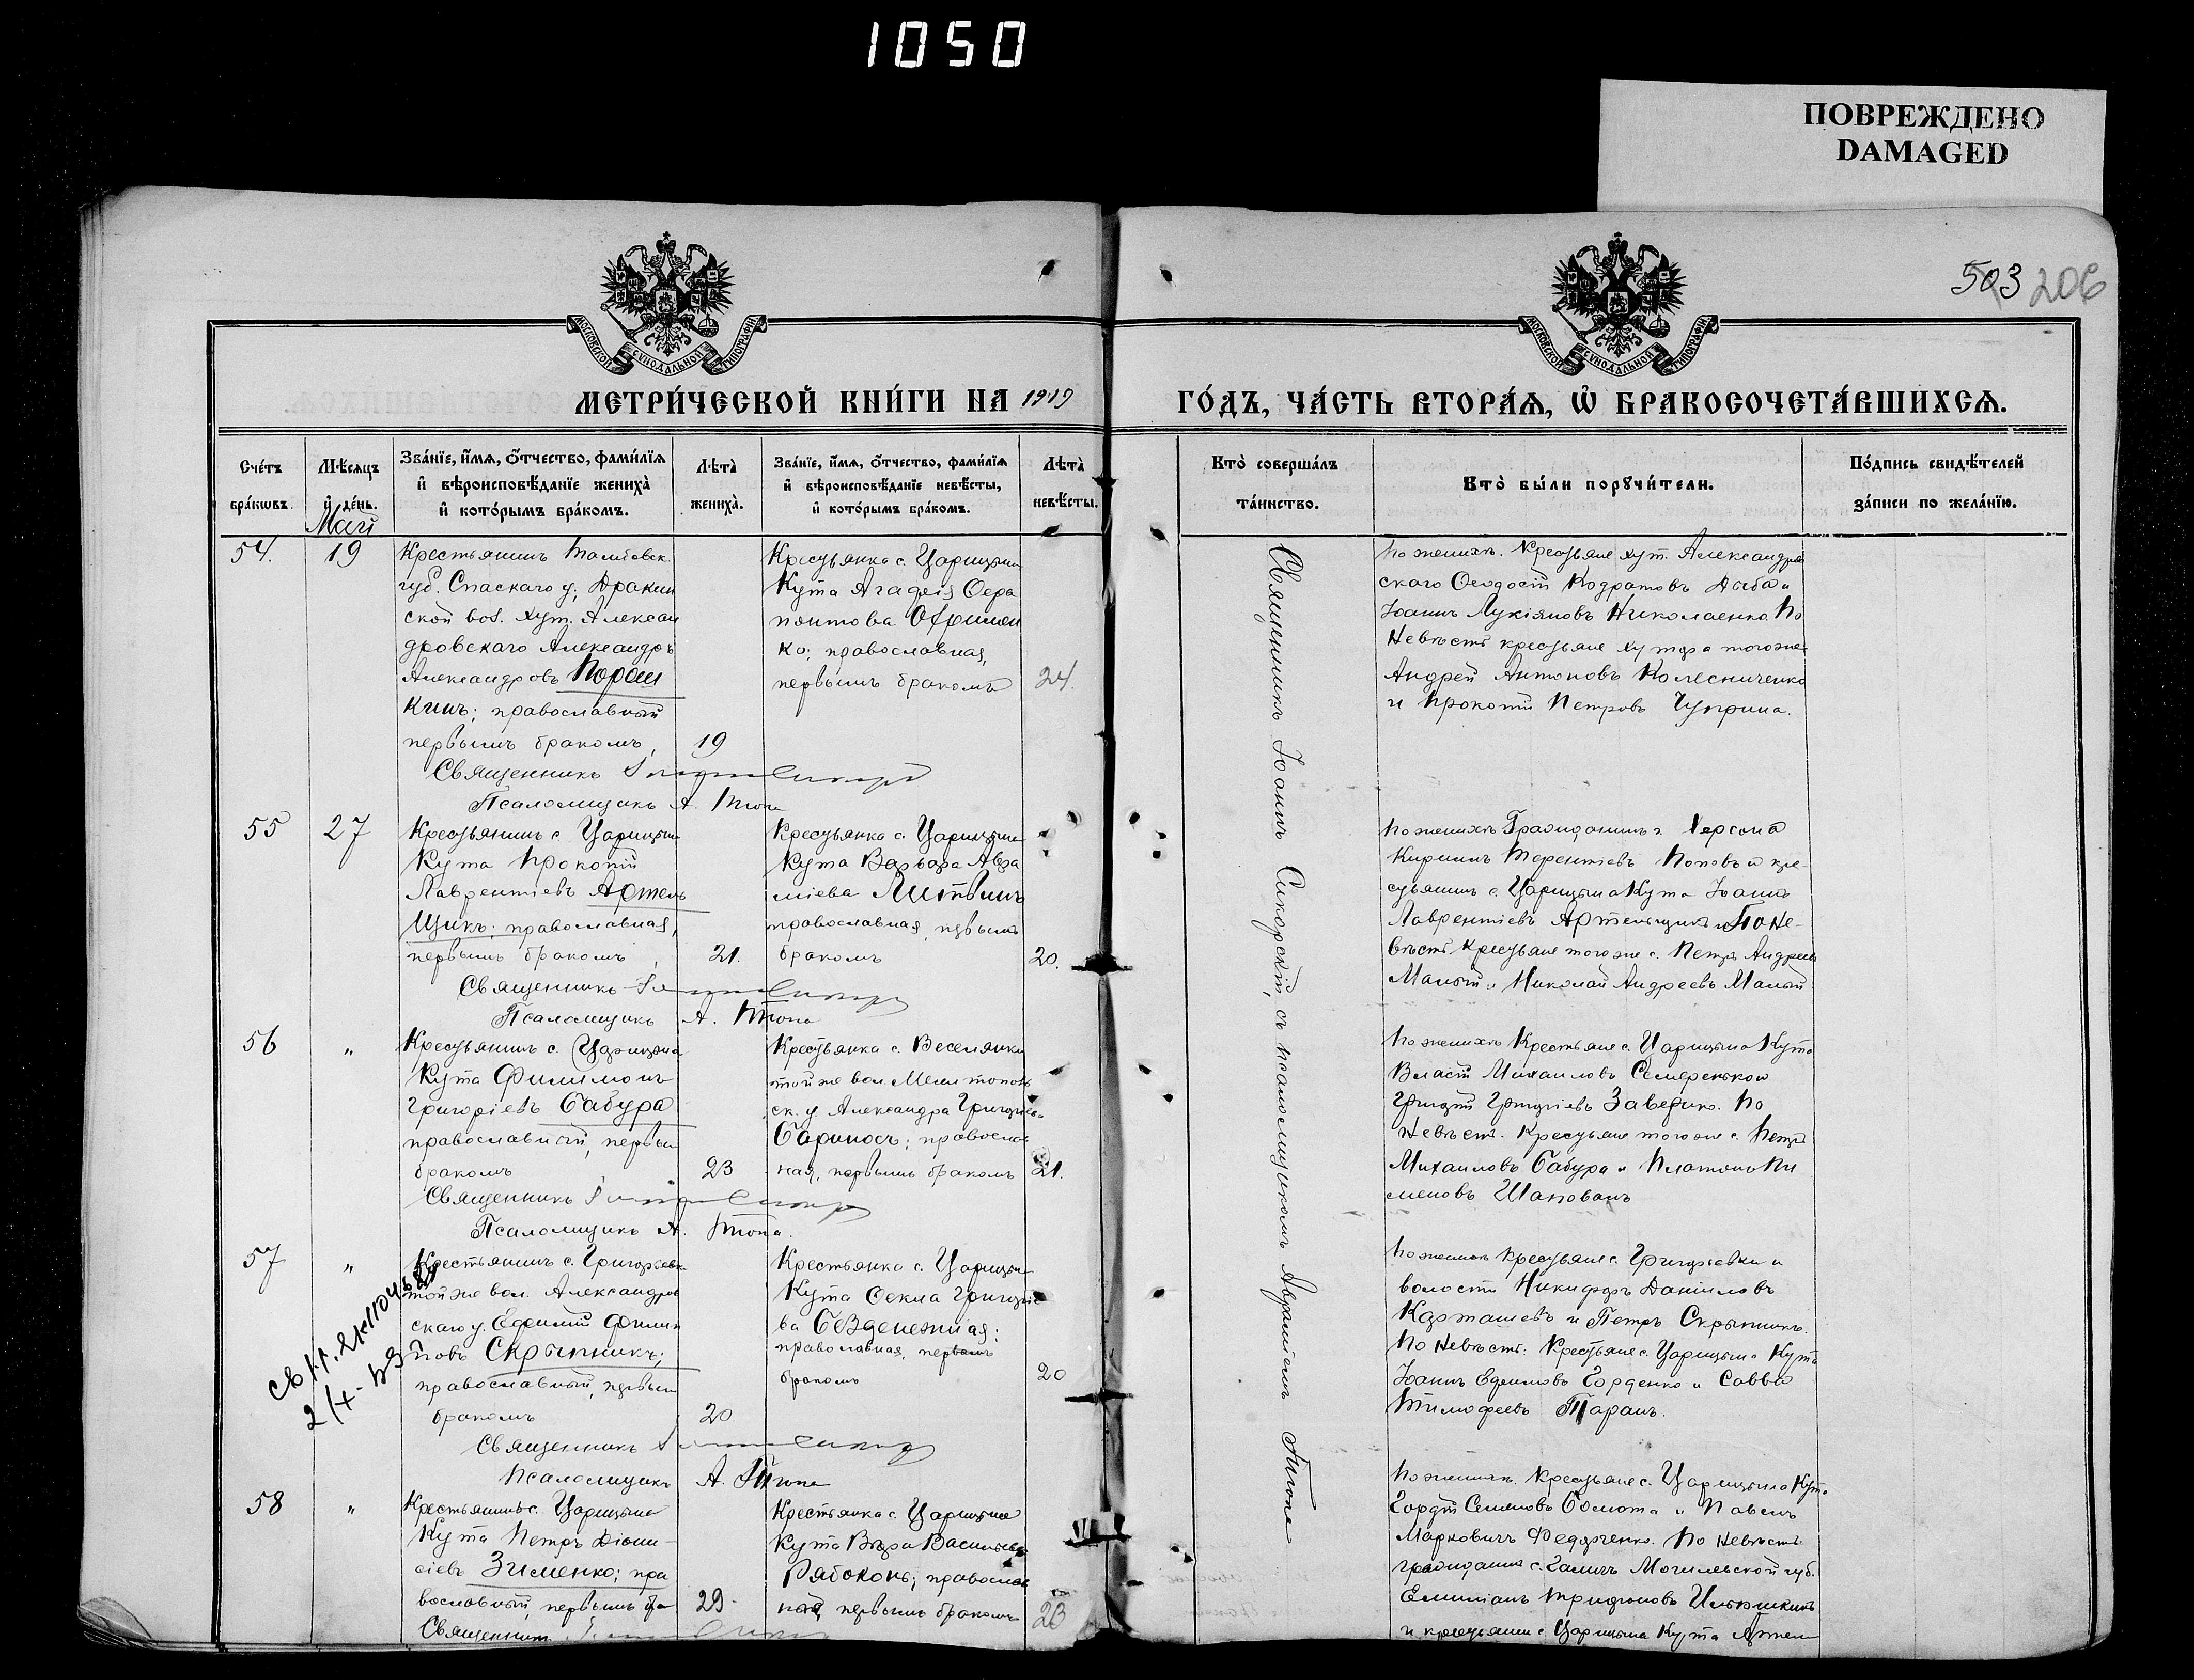 1050
ПОВРЕЖДЕНО
DAMAGED
503 206
МОСКОВСКОЙ СѴНОДАЛЬНОЙ ТИПОГРАФІИ
МОСКОВСКОЙ СѴНОДАЛЬНОЙ ТИПОГРАФІИ
МЕТРИ́ЧЕСКОЙ КНИ́ГИ НА 1919
ГО́ДЪ, ЧА́СТЬ ВТОРА́Ѧ, Ѡ҆ БРАКОСОЧЕТА́ВШИХСѦ.
Сче́тъ
бра́кѡвъ.
Мѣ́сяцъ
и҆ де́нь.
Зва́нїе, и҆́мѧ, ѻ҆́тчество, фами́лїѧ
и҆ вѣроисповѣ́данїе жениха̀
и҆ кото́рымъ бра́комъ.
Лѣта̀
жениха̀.
Зва́нїе, и҆́мѧ, ѻ҆́тчество, фами́лїѧ
и҆ вѣроисповѣ́данїе невѣ́сты,
и҆ кото́рымъ бра́комъ.
Лѣта̀
невѣ́сты.
Кто̀ соверша́лъ
та́инство.
Кто̀ бы́ли порꙋчи́тели.
По́дпись свидѣ́телей
за́писи по жела́нїю.
Май
54. 19
Крестьянинъ Тамбовск.
губ. Спаскаго у., Дракин
ской вол. хут. Алексан
дровскаго Александръ
Александровъ Порош
кинъ; православный
первымъ бракомъ, 19
Крестьянка с. Царицына
Кута Агафія Ѳера
понтова
ко; православная,
первымъ бракомъ 24.
Священникъ
Псаломщикъ А. Тюпа
По женихѣ. Крестьяне хут. Александров
скаго Ѳеодосій Кодратовъ Дыба и
Іоаннъ Лукіяновъ Николаенко. По
Невѣстѣ крестьяне хутора тогоже
Андрей Антоновъ Колесниченко
и Прокопій Петровъ Чуприна.
55 27
Крестьянинъ с. Царицына
Кута Прокопій
Лаврентіевъ Артель
щикъ; православная,
первымъ бракомъ, 21.
Крестьянка с. Царицына
Кута Варвара Авра
міева Литвинъ
православная, первымъ
бракомъ 20.
Священникъ
Псаломщикъ А. Тюпа
По женихѣ Гражданинъ г. Херсона
Кириллъ Терентіевъ Поповъ и кре-
стьянинъ с. Царицына Кута Іоаннъ
Лаврентіевъ Артельщикъ. По Не-
вѣстѣ Крестьяне тогоже с. Петръ Андреевъ
Малый и Николай Андреевъ Малый
56 "
Крестьянинъ с. Царицына
Кута Филимонъ
Григоріевъ Бабура
православный, первым
бракомъ 23
Крестьянка с. Веселянки
той же вол. Мелитопов
ск. у. Александра Григоріева
Бариносъ; православ
ная, первымъ бракомъ 21.
Священникъ
Псаломщикъ А. Тюпа.
По женихѣ Крестьяне с. Царицына Кута
Власій Михаиловъ Семеренько и
Григорій Григоріевъ По
Невѣстѣ. Крестьяне тогоже с. Петръ
Михаиловъ Бабура и Платонъ Пи
меновъ Шаповалъ
57 "
Крестьянинъ с. Григорьевк
той же вол. Александров
скаго у. Ефимій Филип
повъ Скрыпникъ;
православный, первым
бракомъ 20
Крестьянка с. Царицына
Кута Ѳекла Григоріе
ва Безденежная;
православная, первымъ
бракомъ 20
Священникъ
Псаломщикъ А. Тюпа
По женихѣ крестьяне с. Григорьевки и
волости Никифоръ Даніиловъ
Карташевъ и Петръ Скрыпникъ.
По Невѣстѣ: Крестьяне с. Царицына Кута
Іоаннъ Ефимовъ Горденко и Савва
Тимофеевъ Таранъ.
58 "
Крестьянинъ с. Царицына
Кута Петръ Діони-
сіевъ Зименко; пра
вославный, первымъ бра 29.
Священникъ
Крестьянка с. Царицына
Кута Вѣра Васильева
Рябоконь; православ
ная, первымъ бракомъ 23
По женихѣ. Крестьяне с. Царицына Кута
Гордій Семеновъ Болюта и Павелъ
Марковичъ Федорченко. По Невѣстѣ
гражданин с. Галичъ Могилевской губ.
Емиліанъ Трифоновъ
и крестьянин с. Царицына Кута
Священникъ Іоаннъ Сикорскій, съ псаломщикомъ Авраміемъ Тюпа